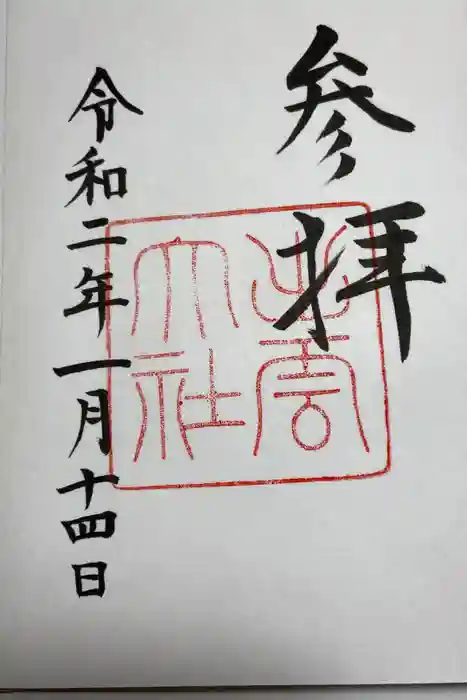 参拝
出雲大社
令和二年一月十四日